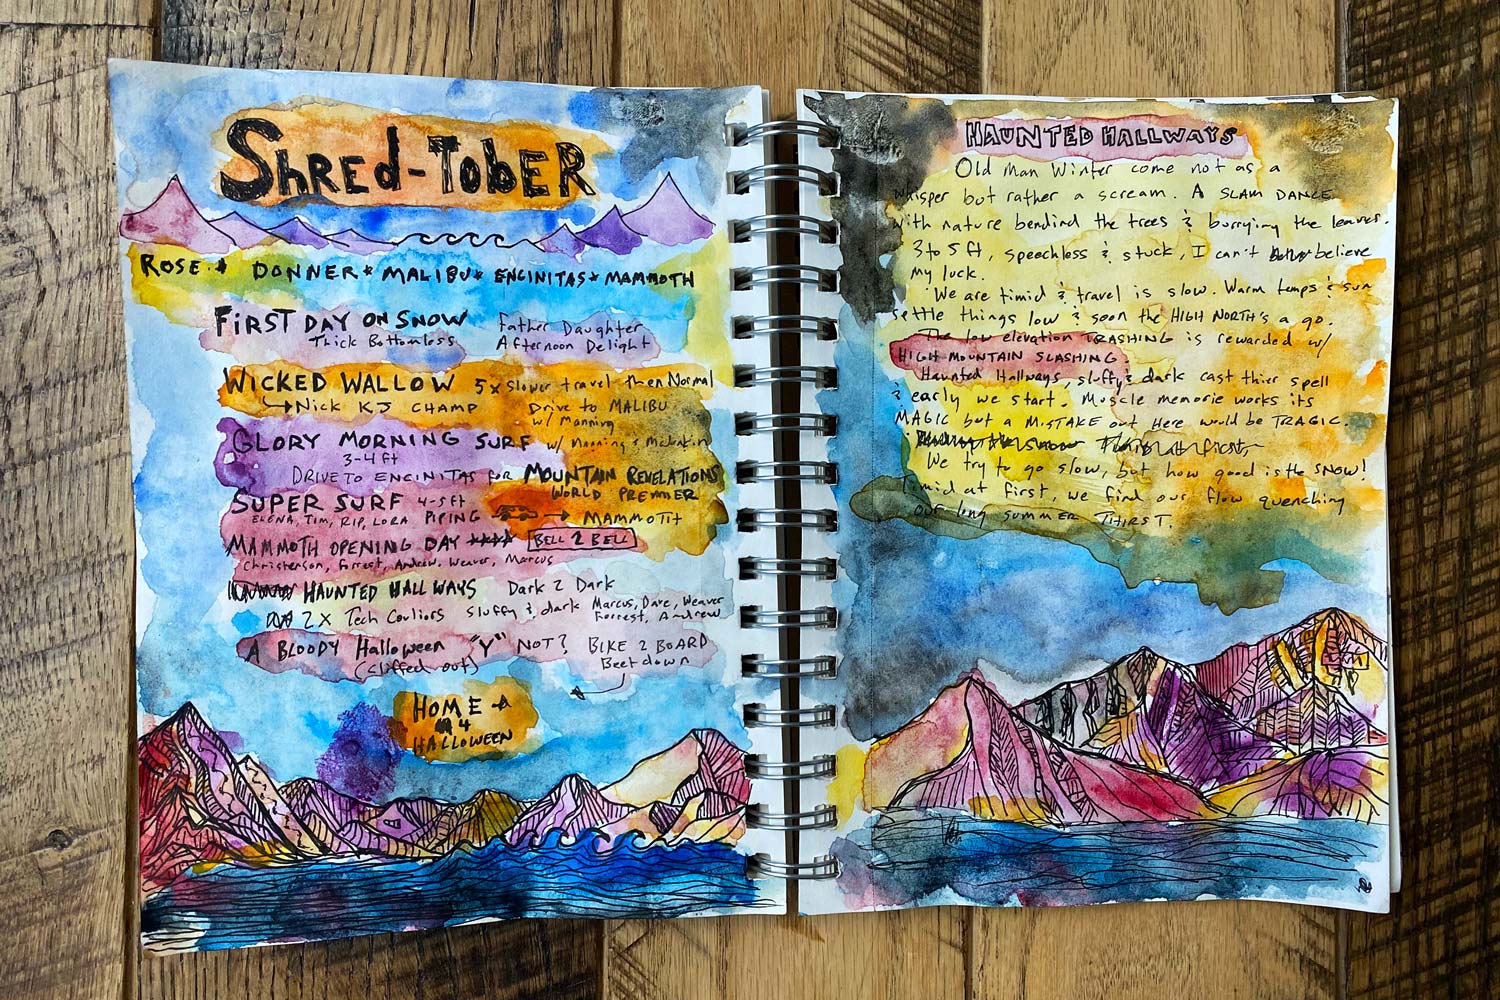 SHRED-TOBER
ROSE * DONNER * MALIBU * ENCINITAS * MAMMOTH
FIRST DAY ON SNOW Father Daughter
Thick Bottomless Afternoon Delight
WICKED WALLOW 5x slower travel then Normal
Nick KJ CHAMP Drive to MALIBU
w/ Manning
GLORY MORNING SURF w/ Manning &
3-4 ft
DRIVE TO ENCINITAS FOR MOUNTAIN REVELATIONS
WORLD PREMIER
SUPER SURF 4-5ft
ELENA, TIM, RIP, LORA PIPING → MAMMOTH
MAMMOTH OPENING DAY **** BELL 2 BELL
Christenson, Forrest, Andrew, Weaver, Marcus
HAUNTED HALLWAYS Dark 2 Dark
2x Tech Couliors Sluffy & dark Marcus, Dave, Weaver
Forrest, Andrew
A BLOODY Halloween "Y" NOT? BIKE 2 BOARD
(cliffed out) Beetdown
HOME
4
HALLOWEEN
HAUNTED HALLWAYS
Old Man Winter come not as a
whisper but rather a scream. A SLAM DANCE
with nature bendind the trees & burrying the leaves.
3 to 5 ft, speechless & stuck, I can't believe
my luck.
We are timid & travel is slow. Warm temps & sun
settle things low & soon the HIGH NORTH'S a go.
The low elevation TRASHING is rewarded w/
HIGH MOUNTAIN SLASHING
Haunted Hallways, sluffy & dark cast thier spell
& early we start. Muscle memorie works its
MAGIC but a MISTAKE out Here would be TRAGIC.
We try to go slow, but how good is the SNOW!
Timid at first, we find our flow quenching
our long SUMMER THIRST.